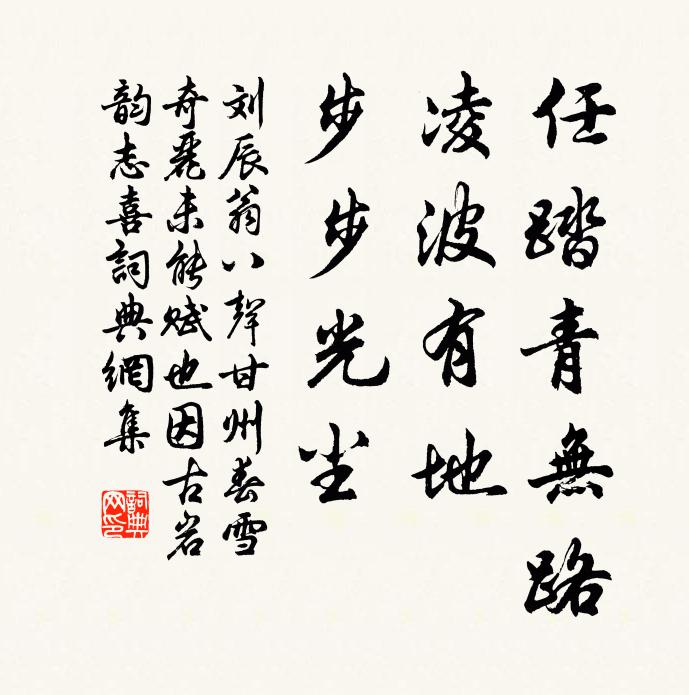 任踏青無路
凌波有地
步步光尘
刘辰翁八聲甘州春雪
奇麗未能赋也因古岩
韵志喜詞典網集
詞典网印